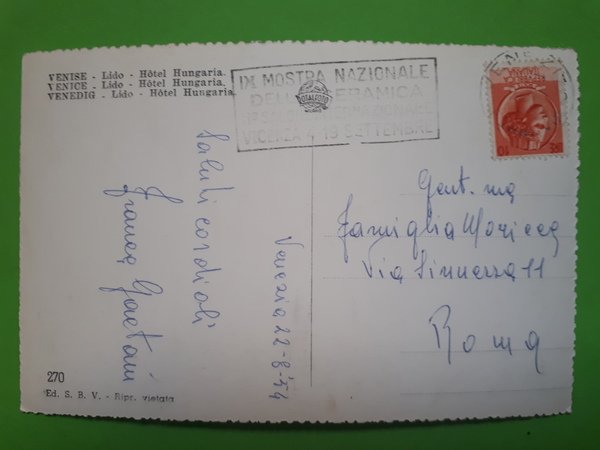 VENISE - Lido - Hôtel Hungaria.
VENICE - Lido - Hôtel Hungaria.
VENEDIG - Lido - Hôtel Hungaria.
IX MOSTRA NAZIONALE
DELLA CERAMICA
VICENZA 4 19 SETTEMBRE
Saluti cordiali
Franca Gaetani
Venezia 22-8-54
Gent.ma
Famiglia Moricca
Via Sinuessa 11
Roma
270
Ed. S. B. V. - Ripr. vietata